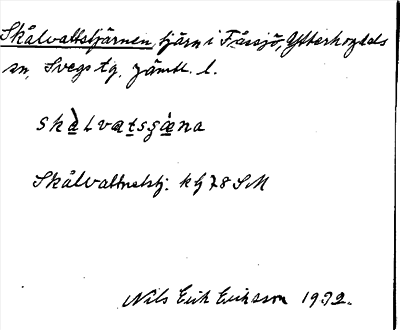 Skålvattstjärnen, tjärn i Fåssjö, Ytterhogdals
sn, Svegs tg, Jämtl. l.
skàLvatsgæ̀na
Skålvattnetstj: kg 78 SM
Nils Erik Eriksson 1932.